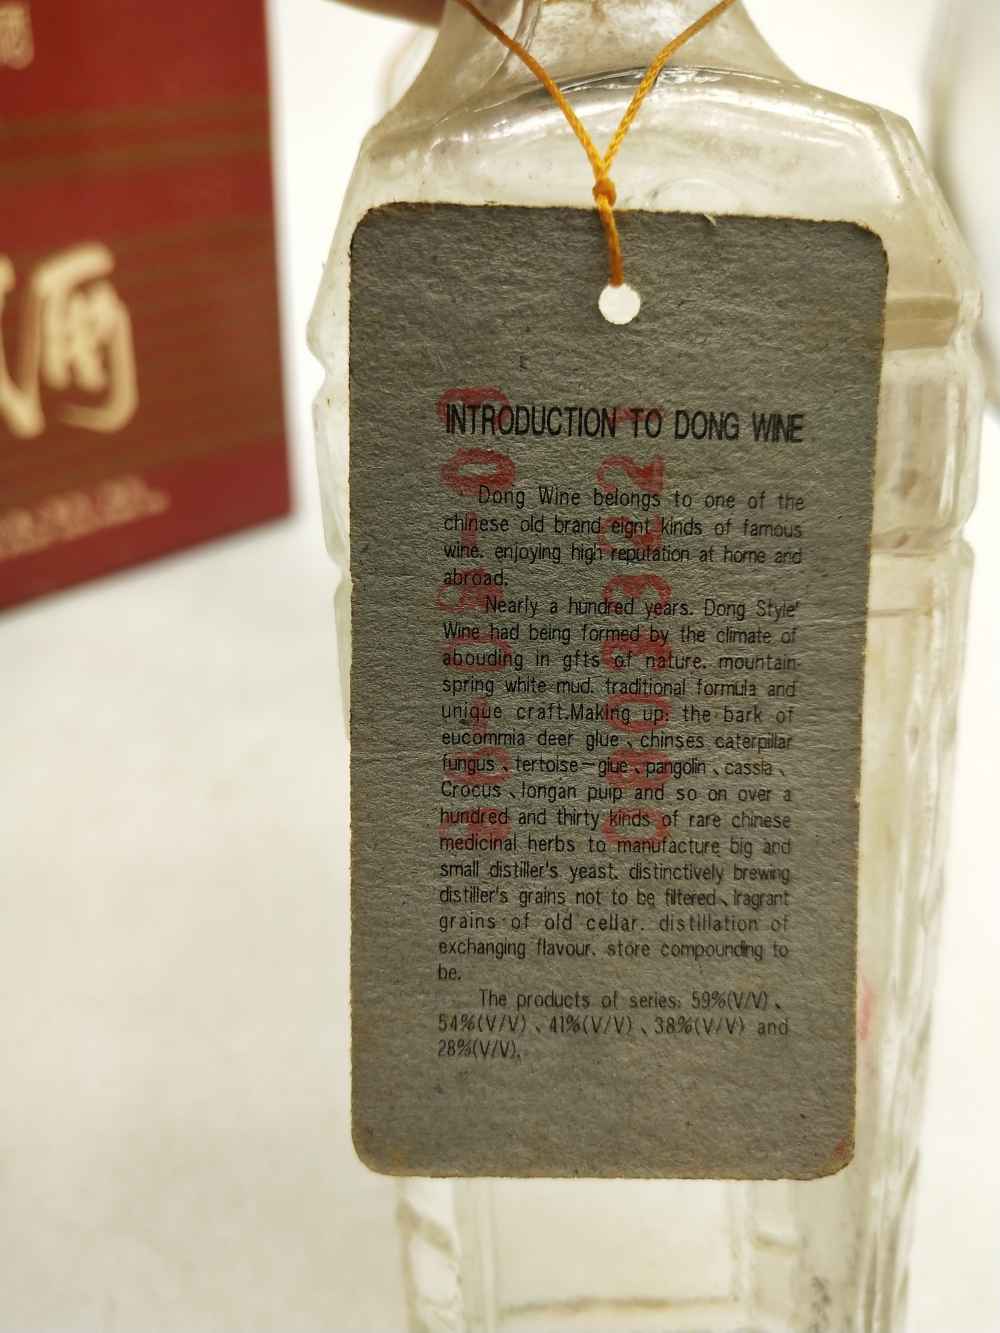 酒
酒
INTRODUCTION TO DONG WINE
Dong Wine belongs to one of the
chinese old brand eignt kinds of famous
wine. enjoying high reputation at home and
abroad.
Nearly a hundred years. Dong Style'
Wine had being formed by the climate of
abouding in gfts of nature. mountain-
spring white mud. traditional formula and
unique craft.Making up: the bark of
eucommia deer glue、chinses caterpillar
fungus、tertoise-glue、pangolin、cassia、
Crocus、longan puip and so on over a
hundred and thirty kinds of rare chinese
medicinal herbs to manufacture big and
small distiller's yeast. distinctively brewing
distiller's grains not to be filtered、iragrant
grains of old cellar. distillation of
exchanging flavour. store compounding to
be.
The products of series: 59%(V/V)、
54%(V/V)、41%(V/V)、38%(V/V) and
28%(V/V).